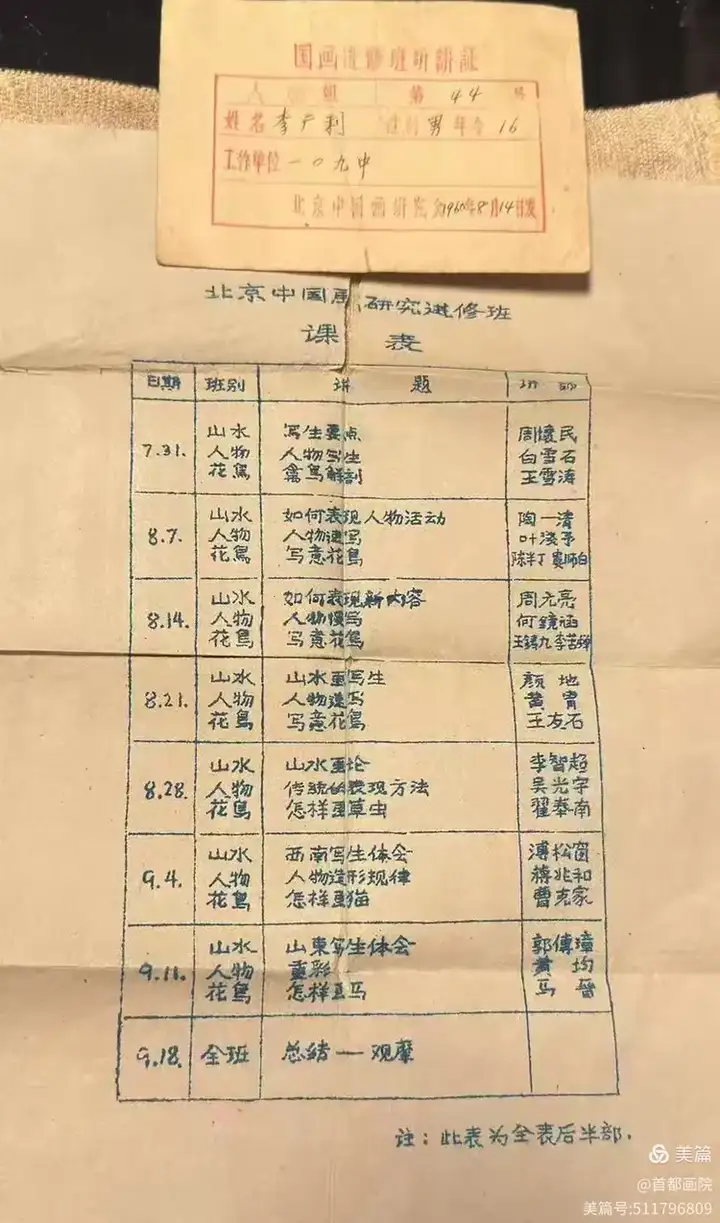 国画进修班听讲证
人 组 第 44 号
姓名 李广利 性别 男 年令 16
工作单位 一〇九中
北京中国画研究会 1960年8月14日发
北京中国画研究进修班
课表
日期 班别 讲题 讲师
7.31. 山水 写生要点 周懷民
人物 人物写生 白雪石
花鳥 禽鳥解剖 王雪涛
8.7. 山水 如何表现人物活动 陶一清
人物 人物速写 叶浅予
花鳥 写意花鳥 陈半丁
8.14. 山水 如何表现新内容 周元亮
人物 人物慢写 何鏡涵
花鳥 写意花鳥 王鑄九 李苦禅
8.21. 山水 山水画写生 颜地
人物 人物速写 黄胄
花鳥 写意花鳥 王友石
8.28. 山水 山水画论 李智超
人物 传统的表现方法 吴光宇
花鳥 怎样画草虫 翟奉南
9.4. 山水 西南写生体会 溥松窗
人物 人物造形规律 蒋兆和
花鳥 怎样画猫 曹克家
9.11. 山水 山東写生体会 郭傳璋
人物 重彩 黄均
花鳥 怎样画马 马晉
9.18. 全班 总结—观摩
注：此表为全表后半部.
美篇
@首都画院
美篇号:511796809